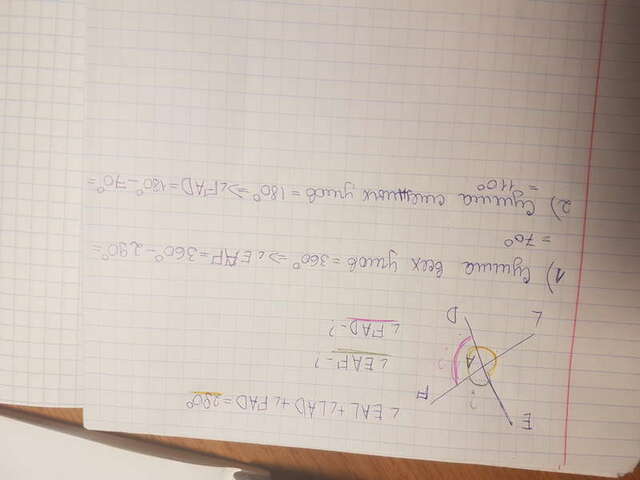 ∠EAL + ∠LAD + ∠FAD = 290°
∠EAF - ?
∠FAD - ?
E
F
?
?
A
D
L
1) Сумма всех углов = 360° => ∠EAF = 360° - 290° =
= 70°
2) Сумма смежных углов = 180° => ∠FAD = 180° - 70° =
= 110°